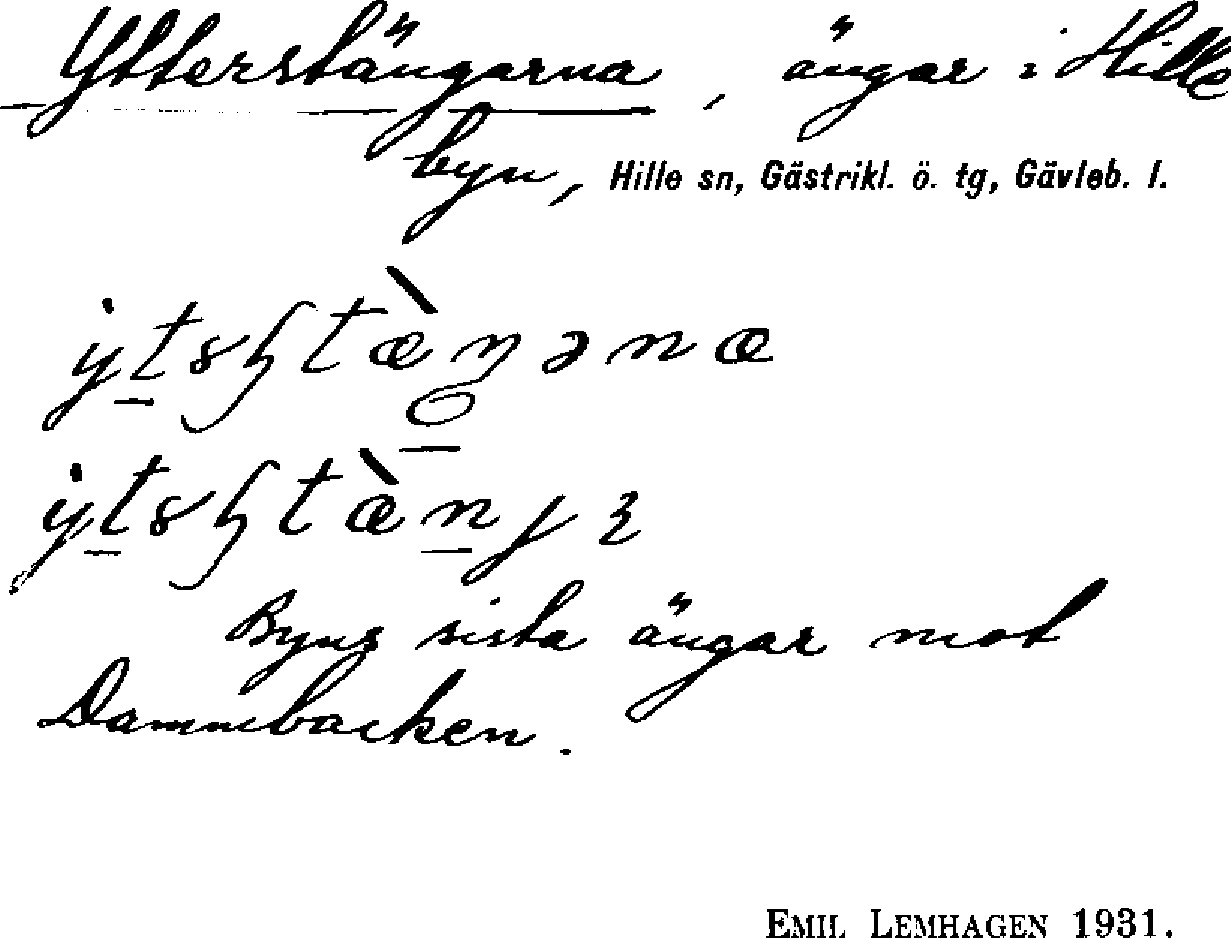 Ytterstängarna, ängar i Hille
byn, Hille sn, Gästrikl. ö. tg, Gävleb. l.
Byns sista ängar mot
Dammbacken.
EMIL LEMHAGEN 1931.